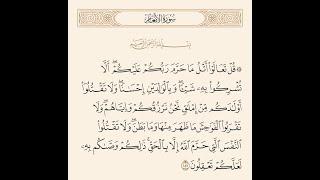 سُورَةُ الأَنْعَامِ
بِسْمِ اللَّهِ الرَّحْمَٰنِ الرَّحِيمِ
۞ قُلْ تَعَالَوْا۟ أَتْلُ مَا حَرَّمَ رَبُّكُمْ عَلَيْكُمْ ۖ أَلَّا
تُشْرِكُوا۟ بِهِۦ شَيْـًٔا ۖ وَبِٱلْوَٰلِدَيْنِ إِحْسَٰنًا ۖ وَلَا تَقْتُلُوٓا۟
أَوْلَٰدَكُم مِّنْ إِمْلَٰقٍ ۖ نَّحْنُ نَرْزُقُكُمْ وَإِيَّاهُمْ ۖ وَلَا
تَقْرَبُوا۟ ٱلْفَوَٰحِشَ مَا ظَهَرَ مِنْهَا وَمَا بَطَنَ ۖ وَلَا تَقْتُلُوا۟
ٱلنَّفْسَ ٱلَّتِى حَرَّمَ ٱللَّهُ إِلَّا بِٱلْحَقِّ ۚ ذَٰلِكُمْ وَصَّىٰكُم بِهِۦ
لَعَلَّكُمْ تَعْقِلُونَ ١٥١